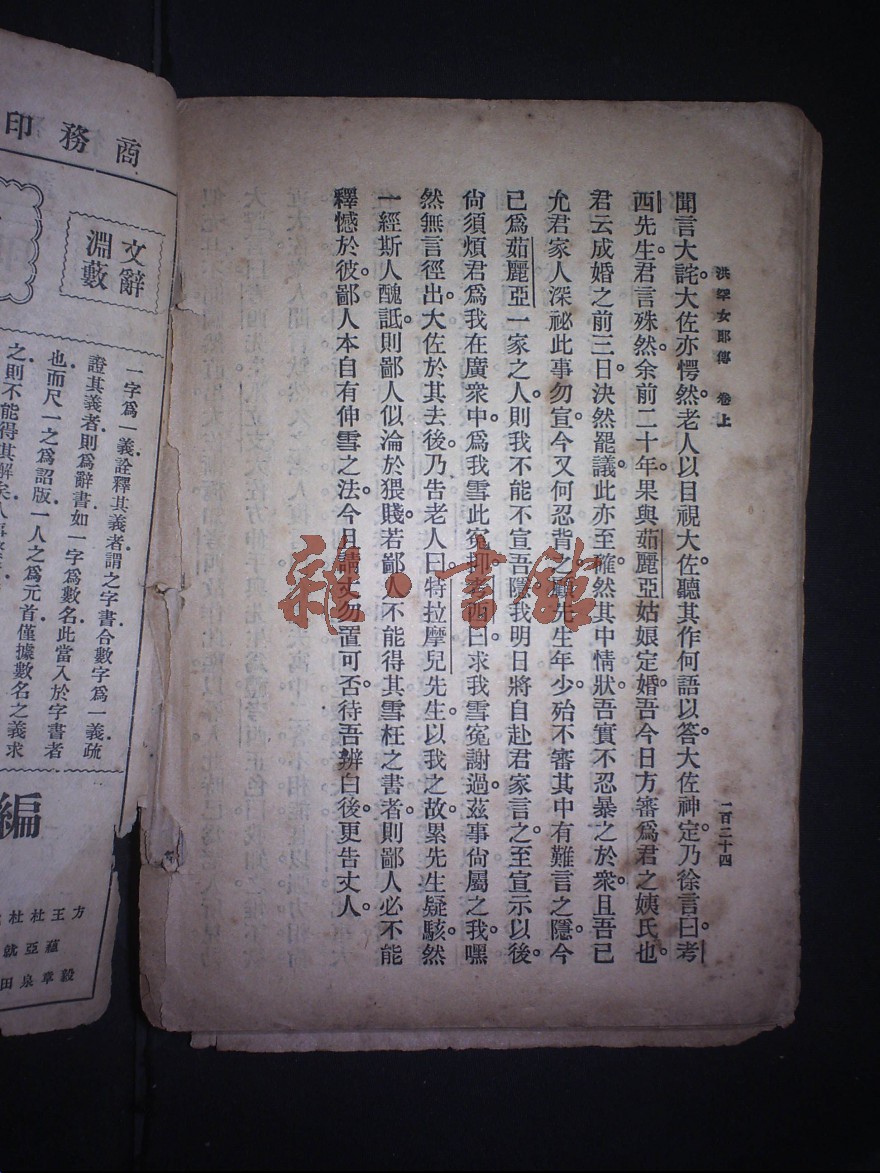 洪罕女郎傳　卷上
一百二十四
聞言大詫。大佐亦愕然。老人以目視大佐。聽其作何語以答。大佐神定。乃徐言曰。考
西先生。君言殊然。余前二十年。果與茹麗亞姑娘定婚。吾今日方審爲君之姨氏也。
君云成婚之前三日。決然罷議。此亦至確。然其中情狀。吾實不忍暴之於衆。且吾已
允君家人深祕此事勿宣。今又何忍背之。顧先生年少。殆不審其中有難言之隱。今
已爲茹麗亞一家之人。則我不能不宣吾隱。我明日將自赴君家言之。至宣示以後。
尙須煩君爲我在廣衆中。爲我雪此寃抑。考西曰。求我雪寃謝過。茲事尙屬之我。嘿
然無言徑出。大佐於其去後。乃告老人曰。特拉摩兒先生。以我之故。累先生疑駭。然
一經斯人醜詆。則鄙人似淪於猥賤。若鄙人不能得其雪枉之書者。則鄙人必不能
釋憾於彼。鄙人本自有伸雪之法。今且請丈勿置可否。待吾辨白後。更告丈人。
商務印
文辭
淵藪
一字爲一義詮釋其義者謂之字書合數字爲一義疏
證其義者則爲辭書如一字爲數名此當入於字書者
也而尺一之爲詔版一人之爲元首僅據數名之義求
之則不能得其解矣
編
方王杜杜
蘊亞就
毅章泉田
雜·書館